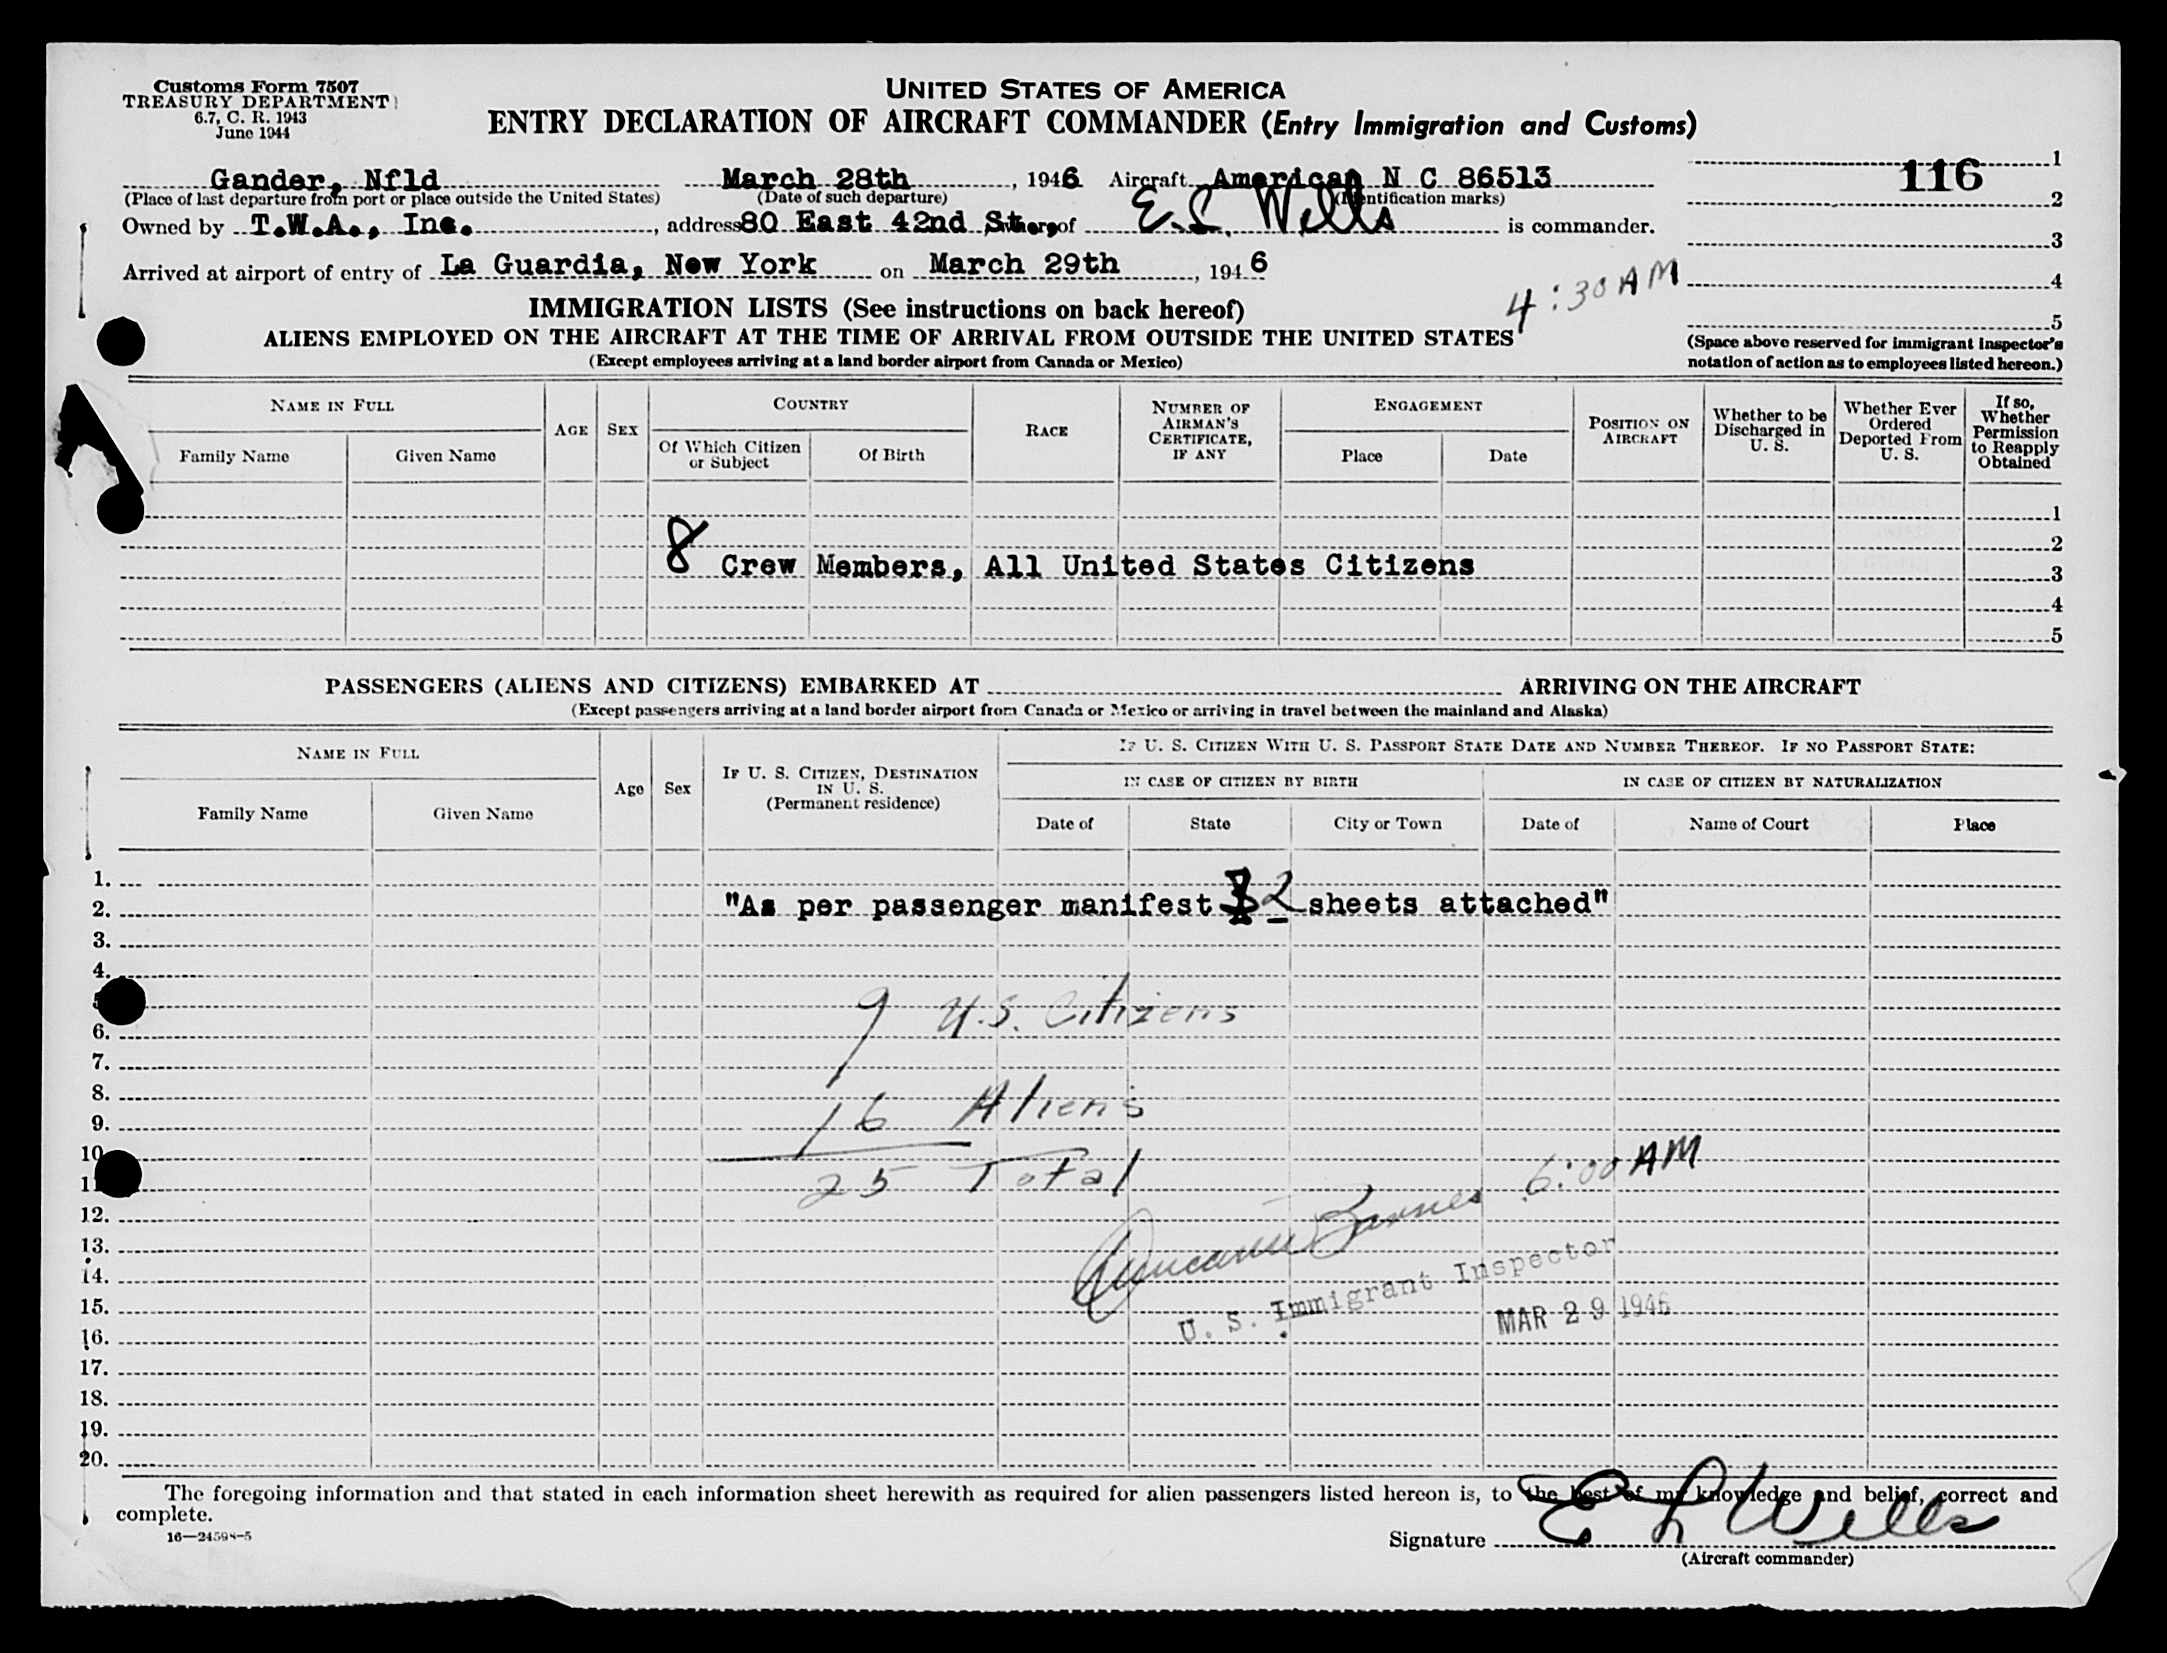 Customs Form 7507
TREASURY DEPARTMENT
6.7, C. R. 1943
June 1944
UNITED STATES OF AMERICA
ENTRY DECLARATION OF AIRCRAFT COMMANDER (Entry Immigration and Customs)
Gander, Nfld March 28th, 1946 Aircraft American N C 86513
(Place of last departure from port or place outside the United States) (Date of such departure) (Identification marks)
116
1
2
3
4
5
Owned by T.W.A., Inc., address 80 East 42nd St., of E. L. Wells is commander.
Arrived at airport of entry of La Guardia, New York on March 29th, 1946
4:30 AM
IMMIGRATION LISTS (See instructions on back hereof)
ALIENS EMPLOYED ON THE AIRCRAFT AT THE TIME OF ARRIVAL FROM OUTSIDE THE UNITED STATES
(Except employees arriving at a land border airport from Canada or Mexico)
(Space above reserved for immigrant inspector's
notation of action as to employees listed hereon.)
NAME IN FULL
Family Name Given Name
AGE SEX
COUNTRY
Of Which Citizen or Subject Of Birth
RACE
NUMBER OF AIRMAN'S CERTIFICATE, IF ANY
ENGAGEMENT
Place Date
POSITION ON AIRCRAFT
Whether to be Discharged in U. S.
Whether Ever Ordered Deported From U. S.
If so, Whether Permission to Reapply Obtained
1
2
8 Crew Members, All United States Citizens
3
4
5
PASSENGERS (ALIENS AND CITIZENS) EMBARKED AT ARRIVING ON THE AIRCRAFT
(Except passengers arriving at a land border airport from Canada or Mexico or arriving in travel between the mainland and Alaska)
NAME IN FULL
Family Name Given Name
Age Sex
IF U. S. CITIZEN, DESTINATION IN U. S.
(Permanent residence)
IF U. S. CITIZEN WITH U. S. PASSPORT STATE DATE AND NUMBER THEREOF. IF NO PASSPORT STATE:
IN CASE OF CITIZEN BY BIRTH IN CASE OF CITIZEN BY NATURALIZATION
Date of State City or Town Date of Name of Court Place
1.
2. "As per passenger manifest 2 sheets attached"
3.
4.
5
6. 9 U.S. Citizens
7.
8.
9. 16 Aliens
10
11 25 Total 6:00 AM
12.
13. Barnes
14. U. S. Immigrant Inspector
15. MAR 29 1946
16.
17.
18.
19.
20.
The foregoing information and that stated in each information sheet herewith as required for alien passengers listed hereon is, to the best of my knowledge and belief, correct and
complete.
16—24598-5
Signature E L Wells
(Aircraft commander)